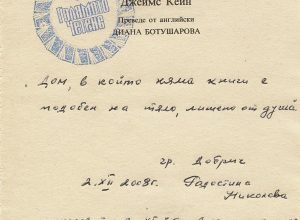 Джеймс Кейн
Преведе от английски
ДИАНА БОТУШАРОВА
Дом, в който няма книги е
подобен на тяло, лишено от душа.
гр. Добрич
2.XII 2008г. Радостина
Николова